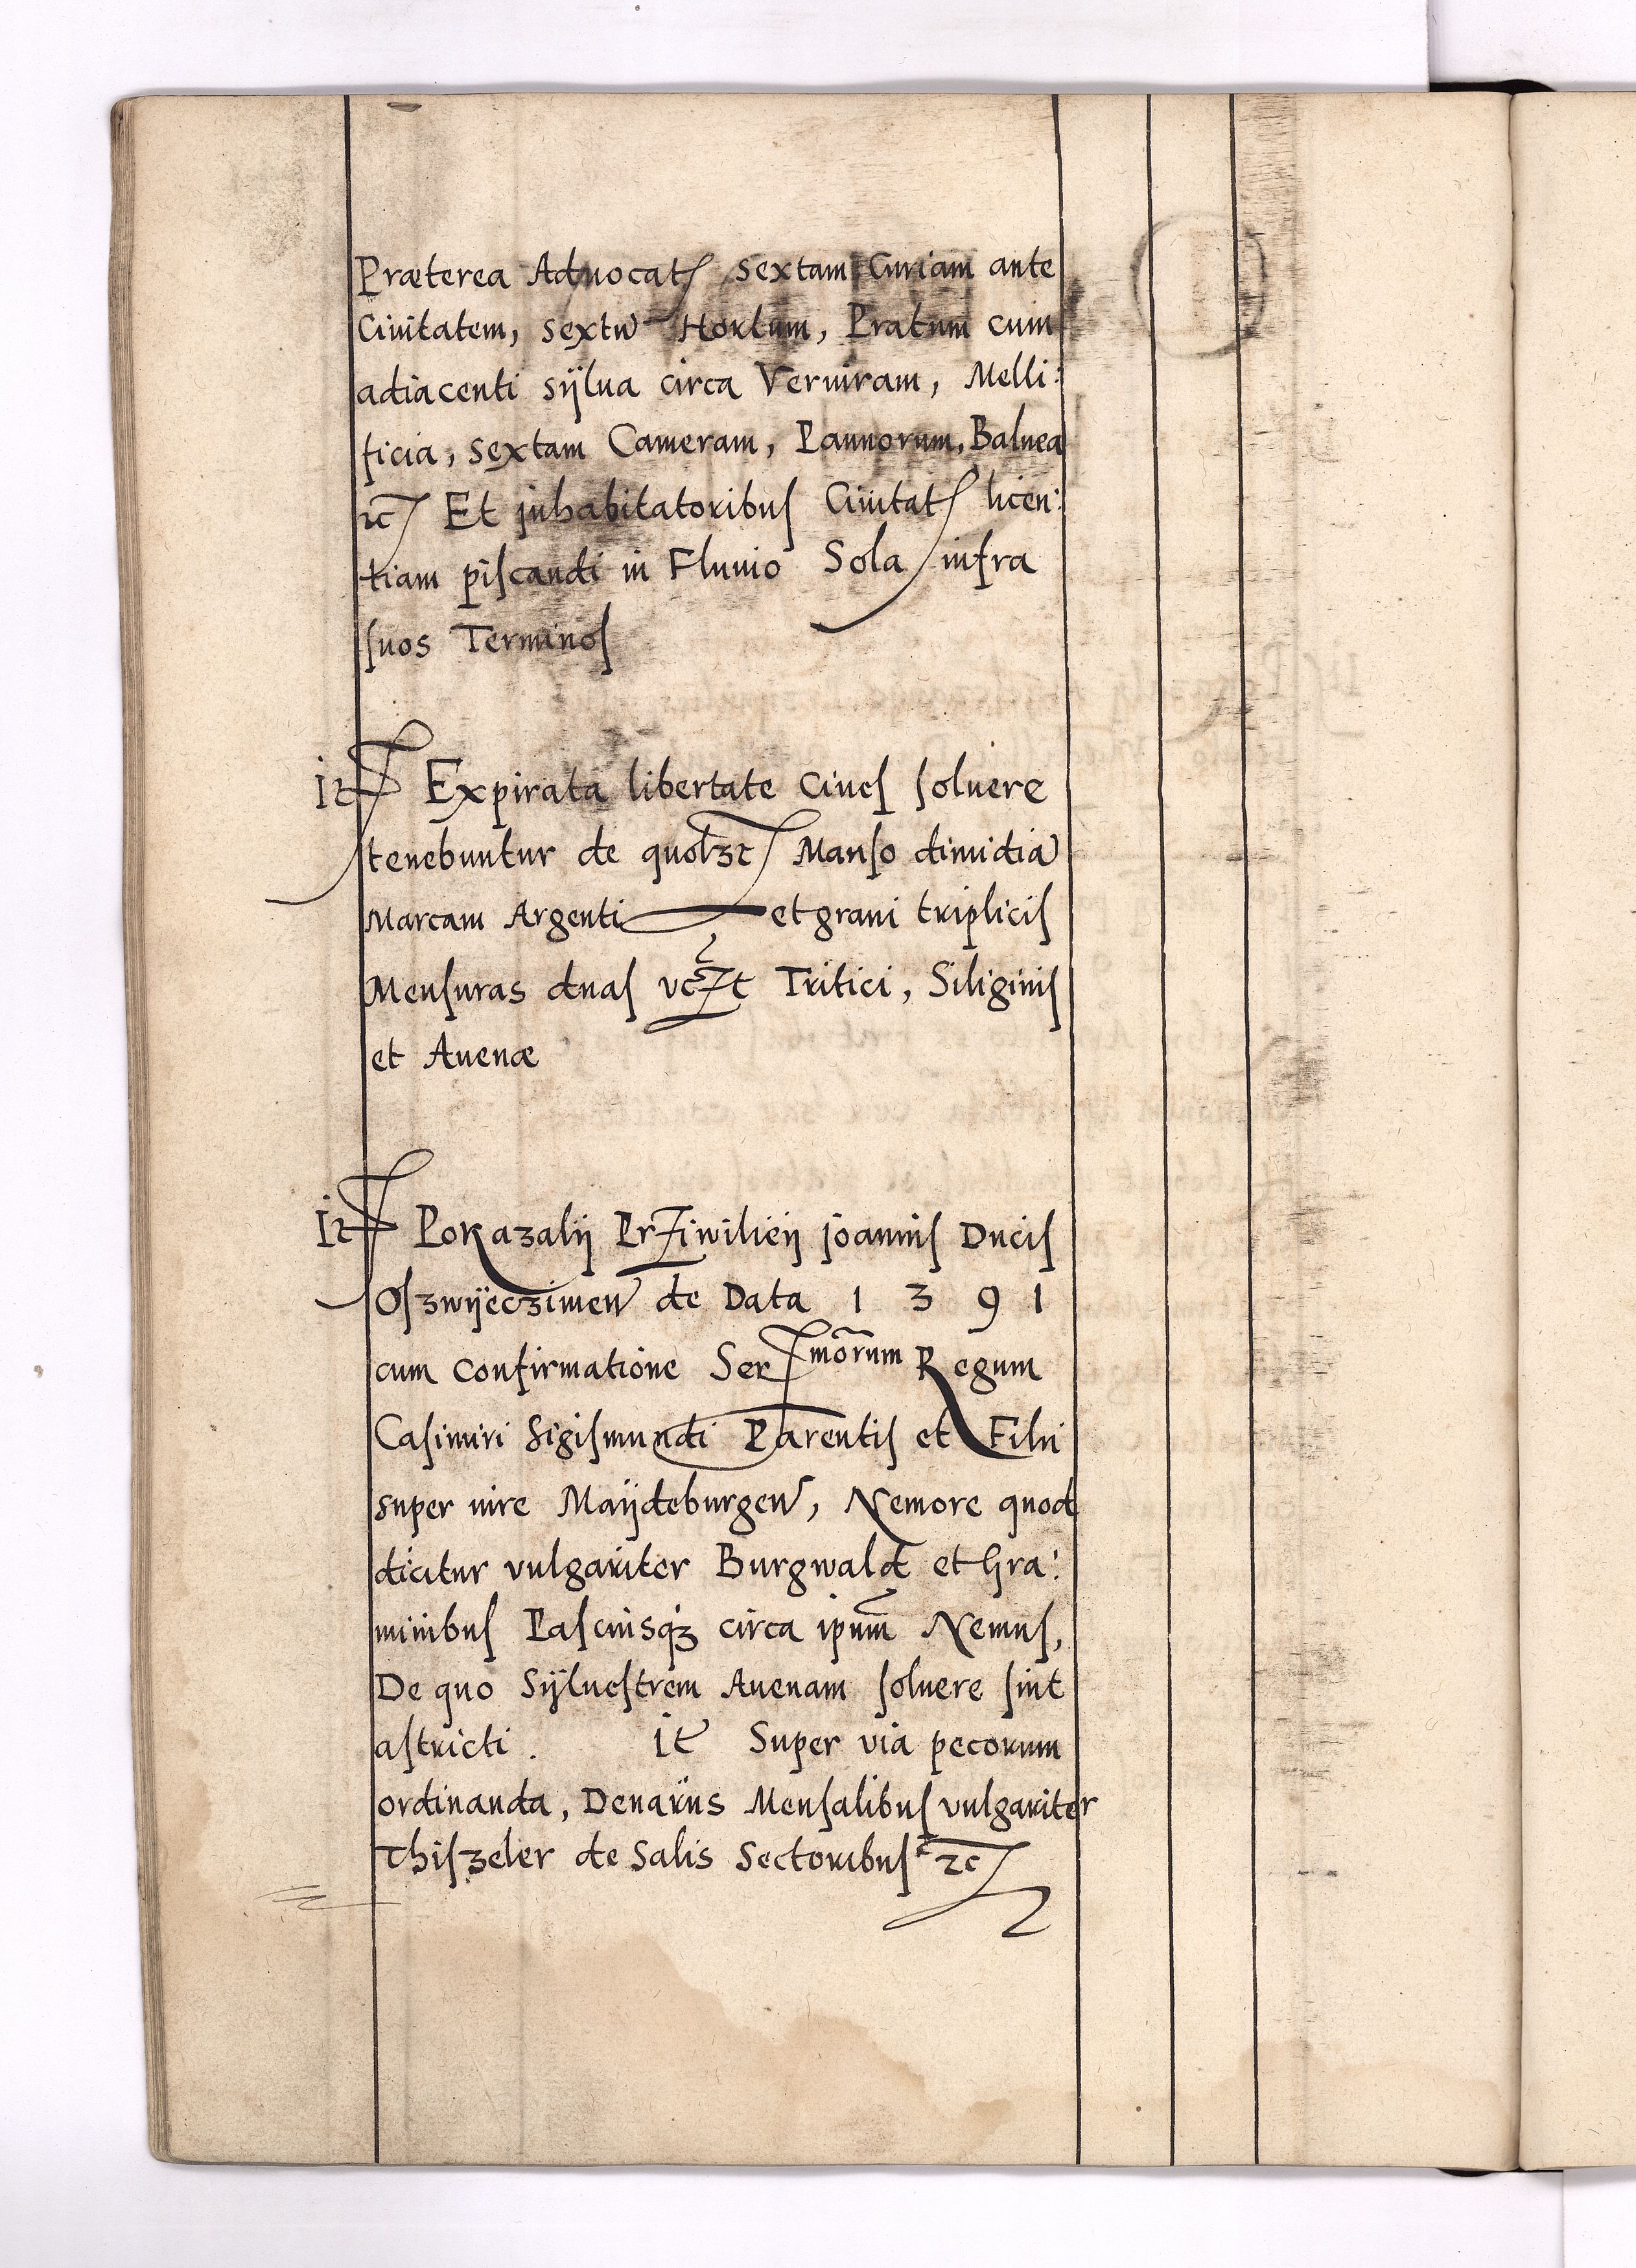 Præterea Aduocatꝭ sextam Curiam ante
Ciuitatem, sextũ Hortum, Pratum cum
adiacenti sÿlua circa Veruiram, Melli:
ficia, sextam Cameram, Pannorum, Balnea
ꝛcꝭ Et inhabitatoribuſ Ciuitatꝭ licen:
tiam piſcandi in Fluuio Sola infra
ſuos Terminoſ
It Expirata libertate Ciueſ ſoluere
tenebuntur de quolꝫt Manſo dimidiã
Marcam Argenti et grani tripliciſ
Menſuras duaſ vczt Tritici, Siliginiſ
et Auenæ
It Pokazalÿ Prziwilieÿ joanniſ Duciſ
Oſzwÿeczimeñ de Data 1 3 9 1
cum confirmatione Ser mõrum Regum
Caſimiri Sigiſmundi Parentiſ et Filii
super iure Maÿdeburgeñ, Nemore quod
dicitur vulgariter Burgwald et Gra:
minibuſ Paſcuisqꝫ circa ipum̃ Nemuſ,
De quo Sÿlueſtrem Auenam ſoluere ſint
aſtricti. It Super via pecorum
ordinanda, Denariis Menſalibuſ vulgariter
Thiſzeler de Salis Sectoribuſ ꝛc